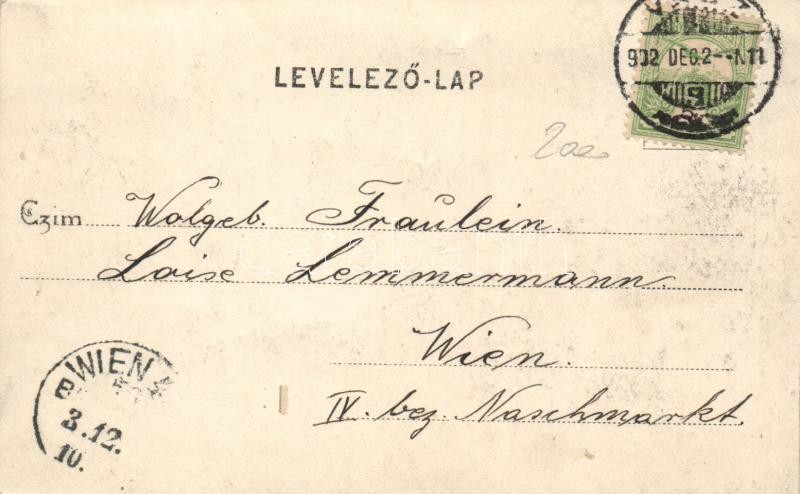 902 DEC. 2 - N.11
LEVELEZŐ-LAP
Czim Wolgeb. Fräulein.
Loise Lemmermann.
Wien.
IV. bez. Naschmarkt.
WIEN
3.12.
10.